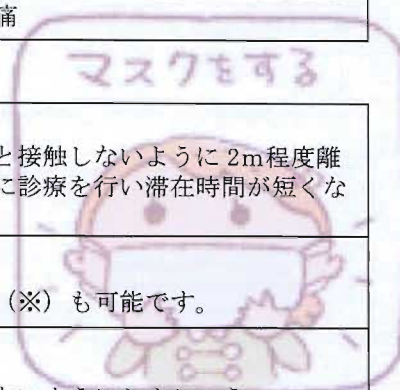 痛
マスクをする
と接触しないように2m程度離
に診療を行い滞在時間が短くな
（※）も可能です。